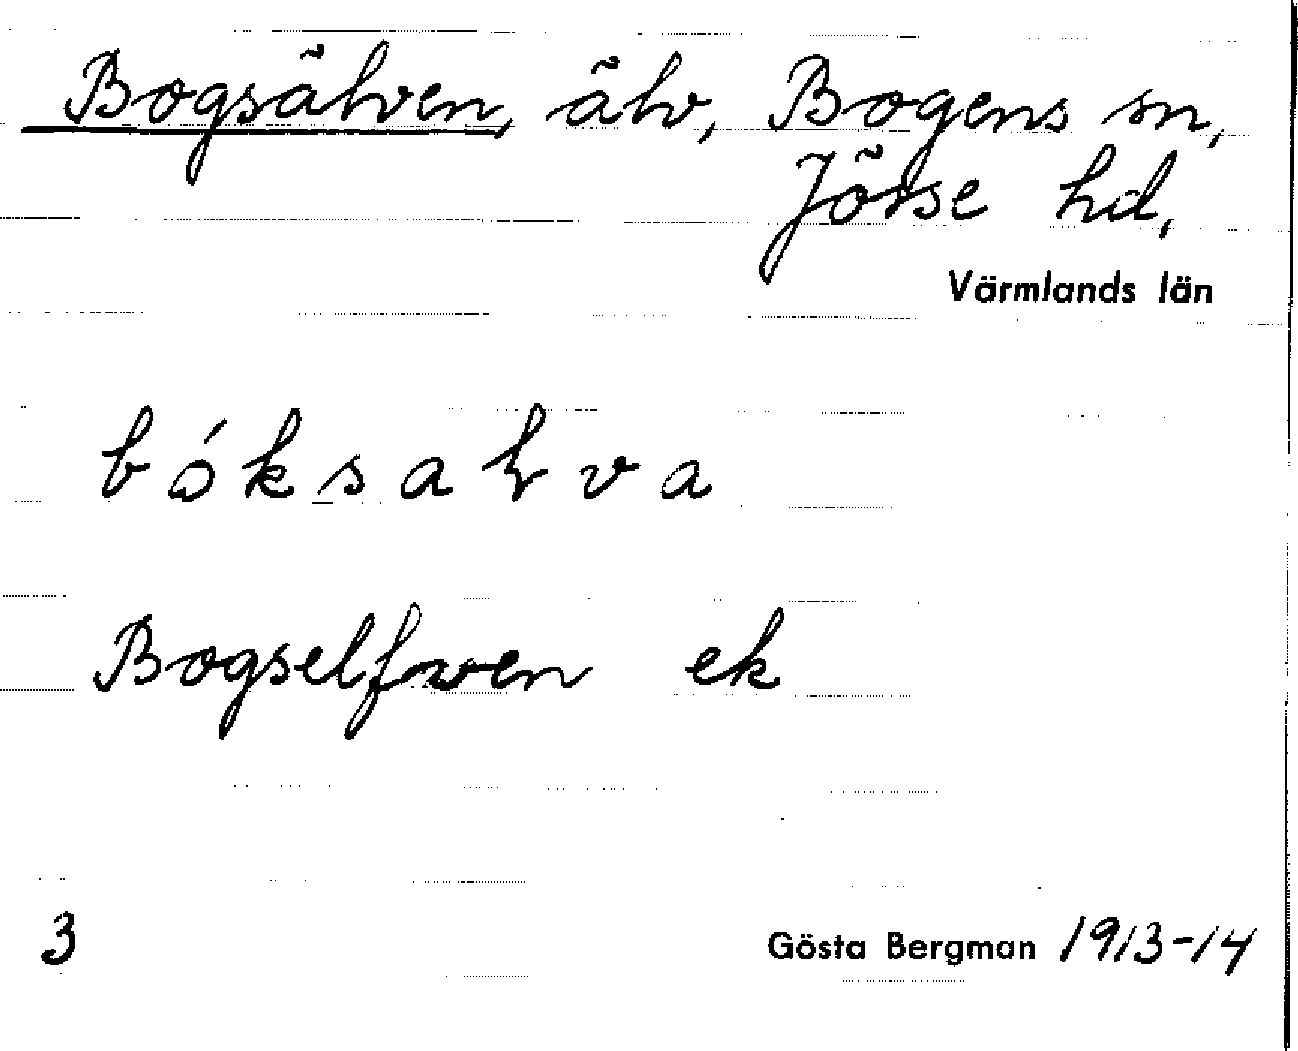 Bogsälven, älv, Bogens sn,
Jösse hd,
Värmlands län
bóksaɫva
Bogselfwen ek
3
Gösta Bergman 1913-14